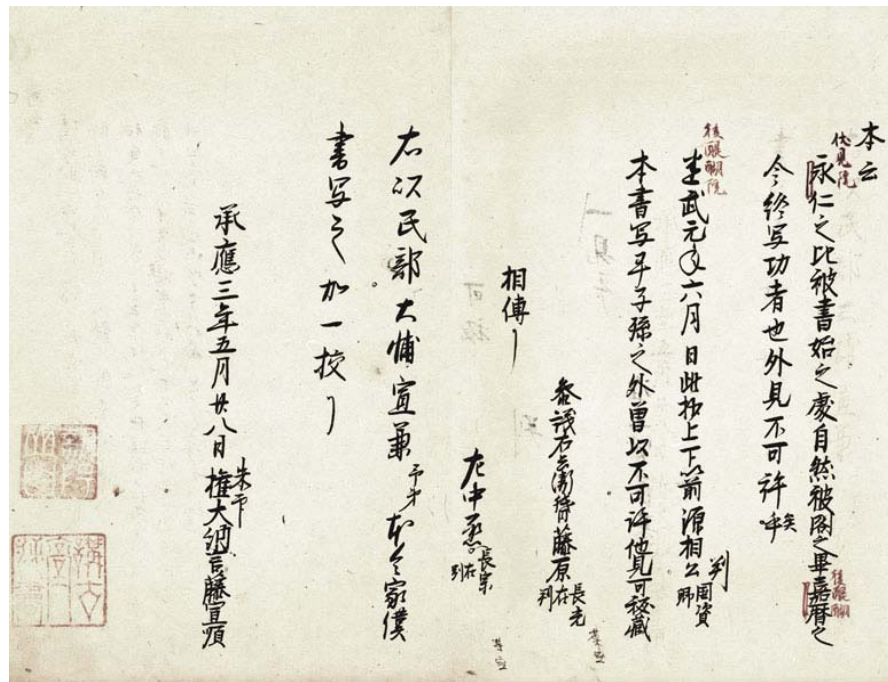 本云
伏見院
永仁之比被書始之處自然被閣之畢嘉暦之
後醍醐
令終写功者也外見不可許
後醍醐院
建武元年六月日此抄上下以前源相公
判
国資卿
本書写早子孫之外曽以不可許他見可秘蔵
参議右兵衛督藤原長光
在判
相傳
左中丞長宗
在判
右以民部大輔宣兼予弟本令家僕
書写之加一校了
承應三年五月廿八日権大納言藤宣順
朱印